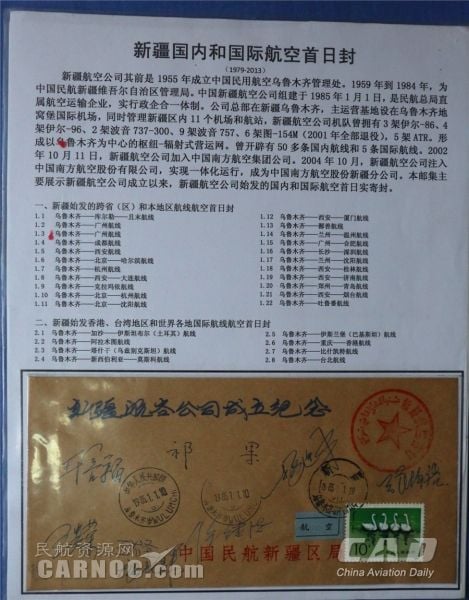 新疆国内和国际航空首日封
(1979-2013)
新疆航空公司其前是 1955 年成立中国民用航空乌鲁木齐管理处。1959 年到 1984 年，为
中国民航新疆维吾尔自治区管理局。中国新疆航空公司组建于 1985 年 1 月 1 日，是民航总局直
属航空运输企业，实行政企合一体制。公司总部在新疆乌鲁木齐，主运营基地设在乌鲁木齐地
窝堡国际机场，同时管理新疆区内 11 个机场和航站，新疆航空公司机队曾拥有 3 架伊尔-86，4
架伊尔-96、2 架波音 737-300、9 架波音 757、6 架图-154M（2001 年全部退役），5 架 ATR。形
成以乌鲁木齐为中心的枢纽-辐射式营运网。曾开辟有 50 多条国内航线和 5 条国际航线。2002
年 10 月 11 日，新疆航空公司加入中国南方航空集团公司。2004 年 10 月，新疆航空公司注入
中国南方航空股份有限公司，实现一体化运行，成为中国南方航空股份新疆分公司。本邮集主
要展示新疆航空公司成立以来，新疆航空公司始发的国内和国际航空首日实寄封。
一、新疆始发的跨省（区）和本地区航线航空首日封
1.1 乌鲁木齐——库尔勒—且末航线
1.2 乌鲁木齐——广州航线
1.3 乌鲁木齐——广州航线
1.4 乌鲁木齐——成都航线
1.5 乌鲁木齐——西安航线
1.6 乌鲁木齐——北京—哈尔滨航线
1.7 乌鲁木齐——杭州航线
1.8 乌鲁木齐——西安—大连航线
1.9 乌鲁木齐——克拉玛依航线
1.10 乌鲁木齐——北京—杭州航线
1.11 乌鲁木齐——北京—沈阳航线
1.12 乌鲁木齐——西安—厦门航线
1.13 乌鲁木齐——鄯善航线
1.14 乌鲁木齐——兰州—温州航线
1.15 乌鲁木齐——广州—合肥航线
1.16 乌鲁木齐——长沙—深圳航线
1.17 乌鲁木齐——兰州—沈阳航线
1.18 乌鲁木齐——西安—桂林航线
1.19 乌鲁木齐——西安—济南航线
1.20 乌鲁木齐——郑州—青岛航线
1.21 乌鲁木齐——西安—烟台航线
1.22 乌鲁木齐——吐鲁番航线
二、新疆始发香港、台湾地区和世界各地国际航线航空首日封
2.1 乌鲁木齐——加沙—伊斯坦布尔（土耳其）航线
2.2 乌鲁木齐——阿拉木图航线
2.3 乌鲁木齐——塔什干（乌兹别克斯坦）航线
2.4 乌鲁木齐——新西伯利亚—莫斯科航线
2.5 乌鲁木齐——伊斯兰堡（巴基斯坦）航线
2.6 乌鲁木齐——重庆—香港航线
2.7 乌鲁木齐——比什凯特航线
2.8 乌鲁木齐——台北航线
新疆航空公司成立纪念
祁果
1985.1.1.10
URUMQI
航空
10分
中国民航新疆区局
民航资源网
CARNOC.com
China Aviation Daily